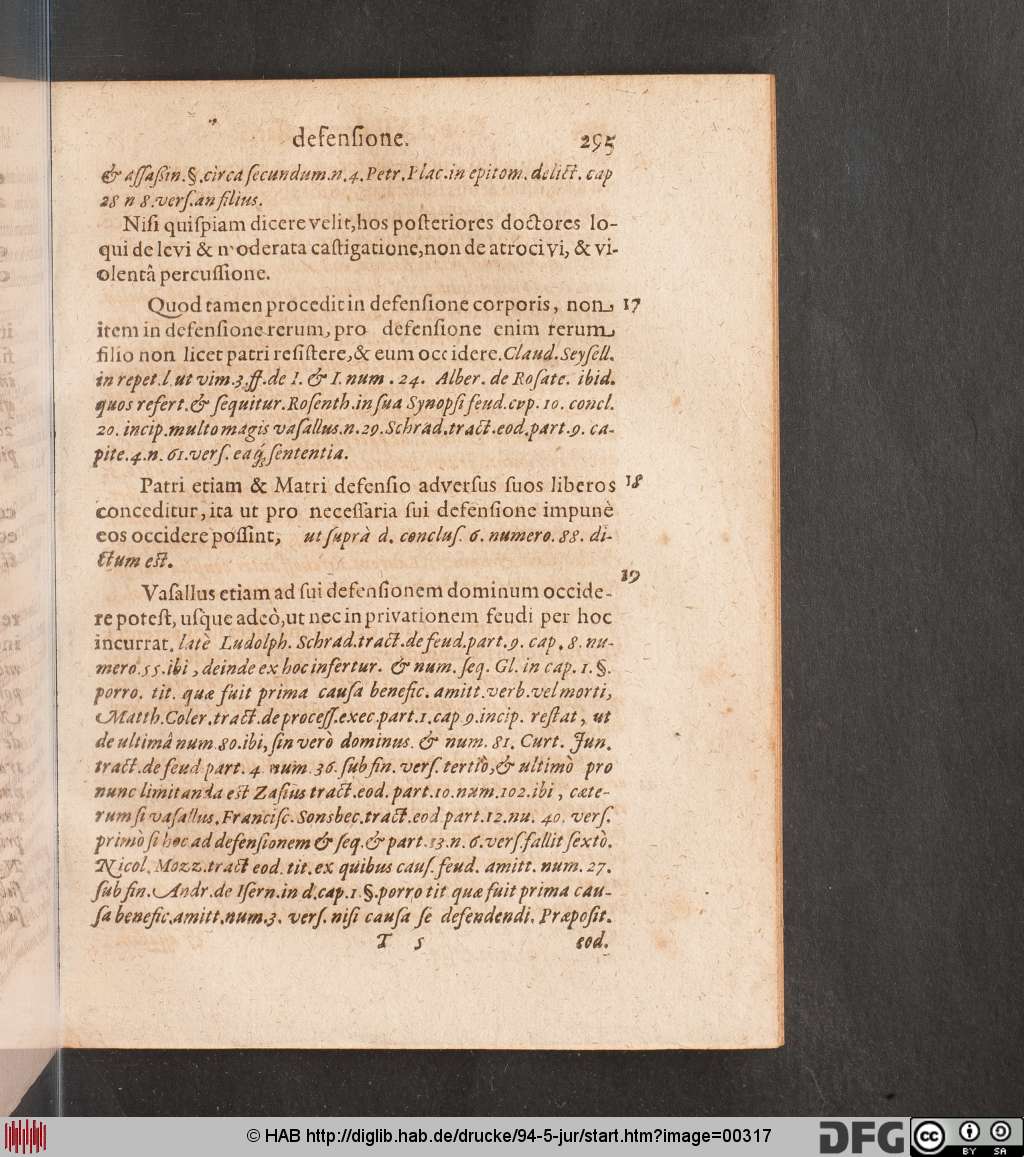 defensione. 295
& assaßin.§.circa secundum.n.4.Petr.Plac.in epitom.delict.cap
28 n 8.vers.an filius.
Nisi quispiam dicere velit,hos posteriores doctores lo-
qui de levi & moderata castigatione,non de atroci vi, & vi-
olentâ percussione.
Quod tamen procedit in defensione corporis, non 17
item in defensione rerum, pro defensione enim rerum
filio non licet patri resistere,& eum occidere.Claud.Seysell.
in repet.l.ut vim.3.ff.de I. & I.num. 24. Alber. de Rosate. ibid.
quos refert.& sequitur.Rosenth.in sua Synopsi feud.cap. 10. concl.
20.incip.multo magis vasallus.n.29.Schrad.tract.eod.part.9. ca-
pite.4.n. 61.vers. eaq́; sententia.
Patri etiam & Matri defensio adversus suos liberos 18
conceditur, ita ut pro necessaria sui defensione impunè
eos occidere possint, ut suprà d. conclus. 6. numero. 88. di-
ctum est.
19
Vasallus etiam ad sui defensionem dominum occide-
re potest, usque adeò,ut nec in privationem feudi per hoc
incurrat. latè Ludolph. Schrad.tract.de feud.part.9. cap. 8. nu-
mero 55.ibi, deinde ex hoc infertur. & num. seq. Gl. in cap. 1. §.
porro. tit. quæ fuit prima causa benefic. amitt.verb.vel morti,
Matth.Coler.tract.de process.exec.part.1.cap 9.incip. restat, ut
de ultimâ num.80.ibi, sin verò dominus. & num. 81. Curt. Jun.
tract.de feud part. 4 num. 36. sub fin. vers. tertiò,& ultimò pro
nunc limitanda est Zasius tract.eod.part.10.num.102.ibi, cæte-
rum si vasallus.Francisc.Sonsbec.tract.eod part.12.nu. 40. vers.
primo si hoc ad defensionem & seq.& part.13.n. 6.vers.fallit sextò.
Nicol. Mozz.tract eod. tit. ex quibus caus. feud. amitt. num. 27.
sub fin. Andr.de Isern.in d.cap.1.§.porro tit quæ fuit prima cau-
sa benefic.amitt.num.3. vers. nisi causa se defendendi. Præposit.
T 5 eod.
© HAB http://diglib.hab.de/drucke/94-5-jur/start.htm?image=00317
DFG cc BY SA